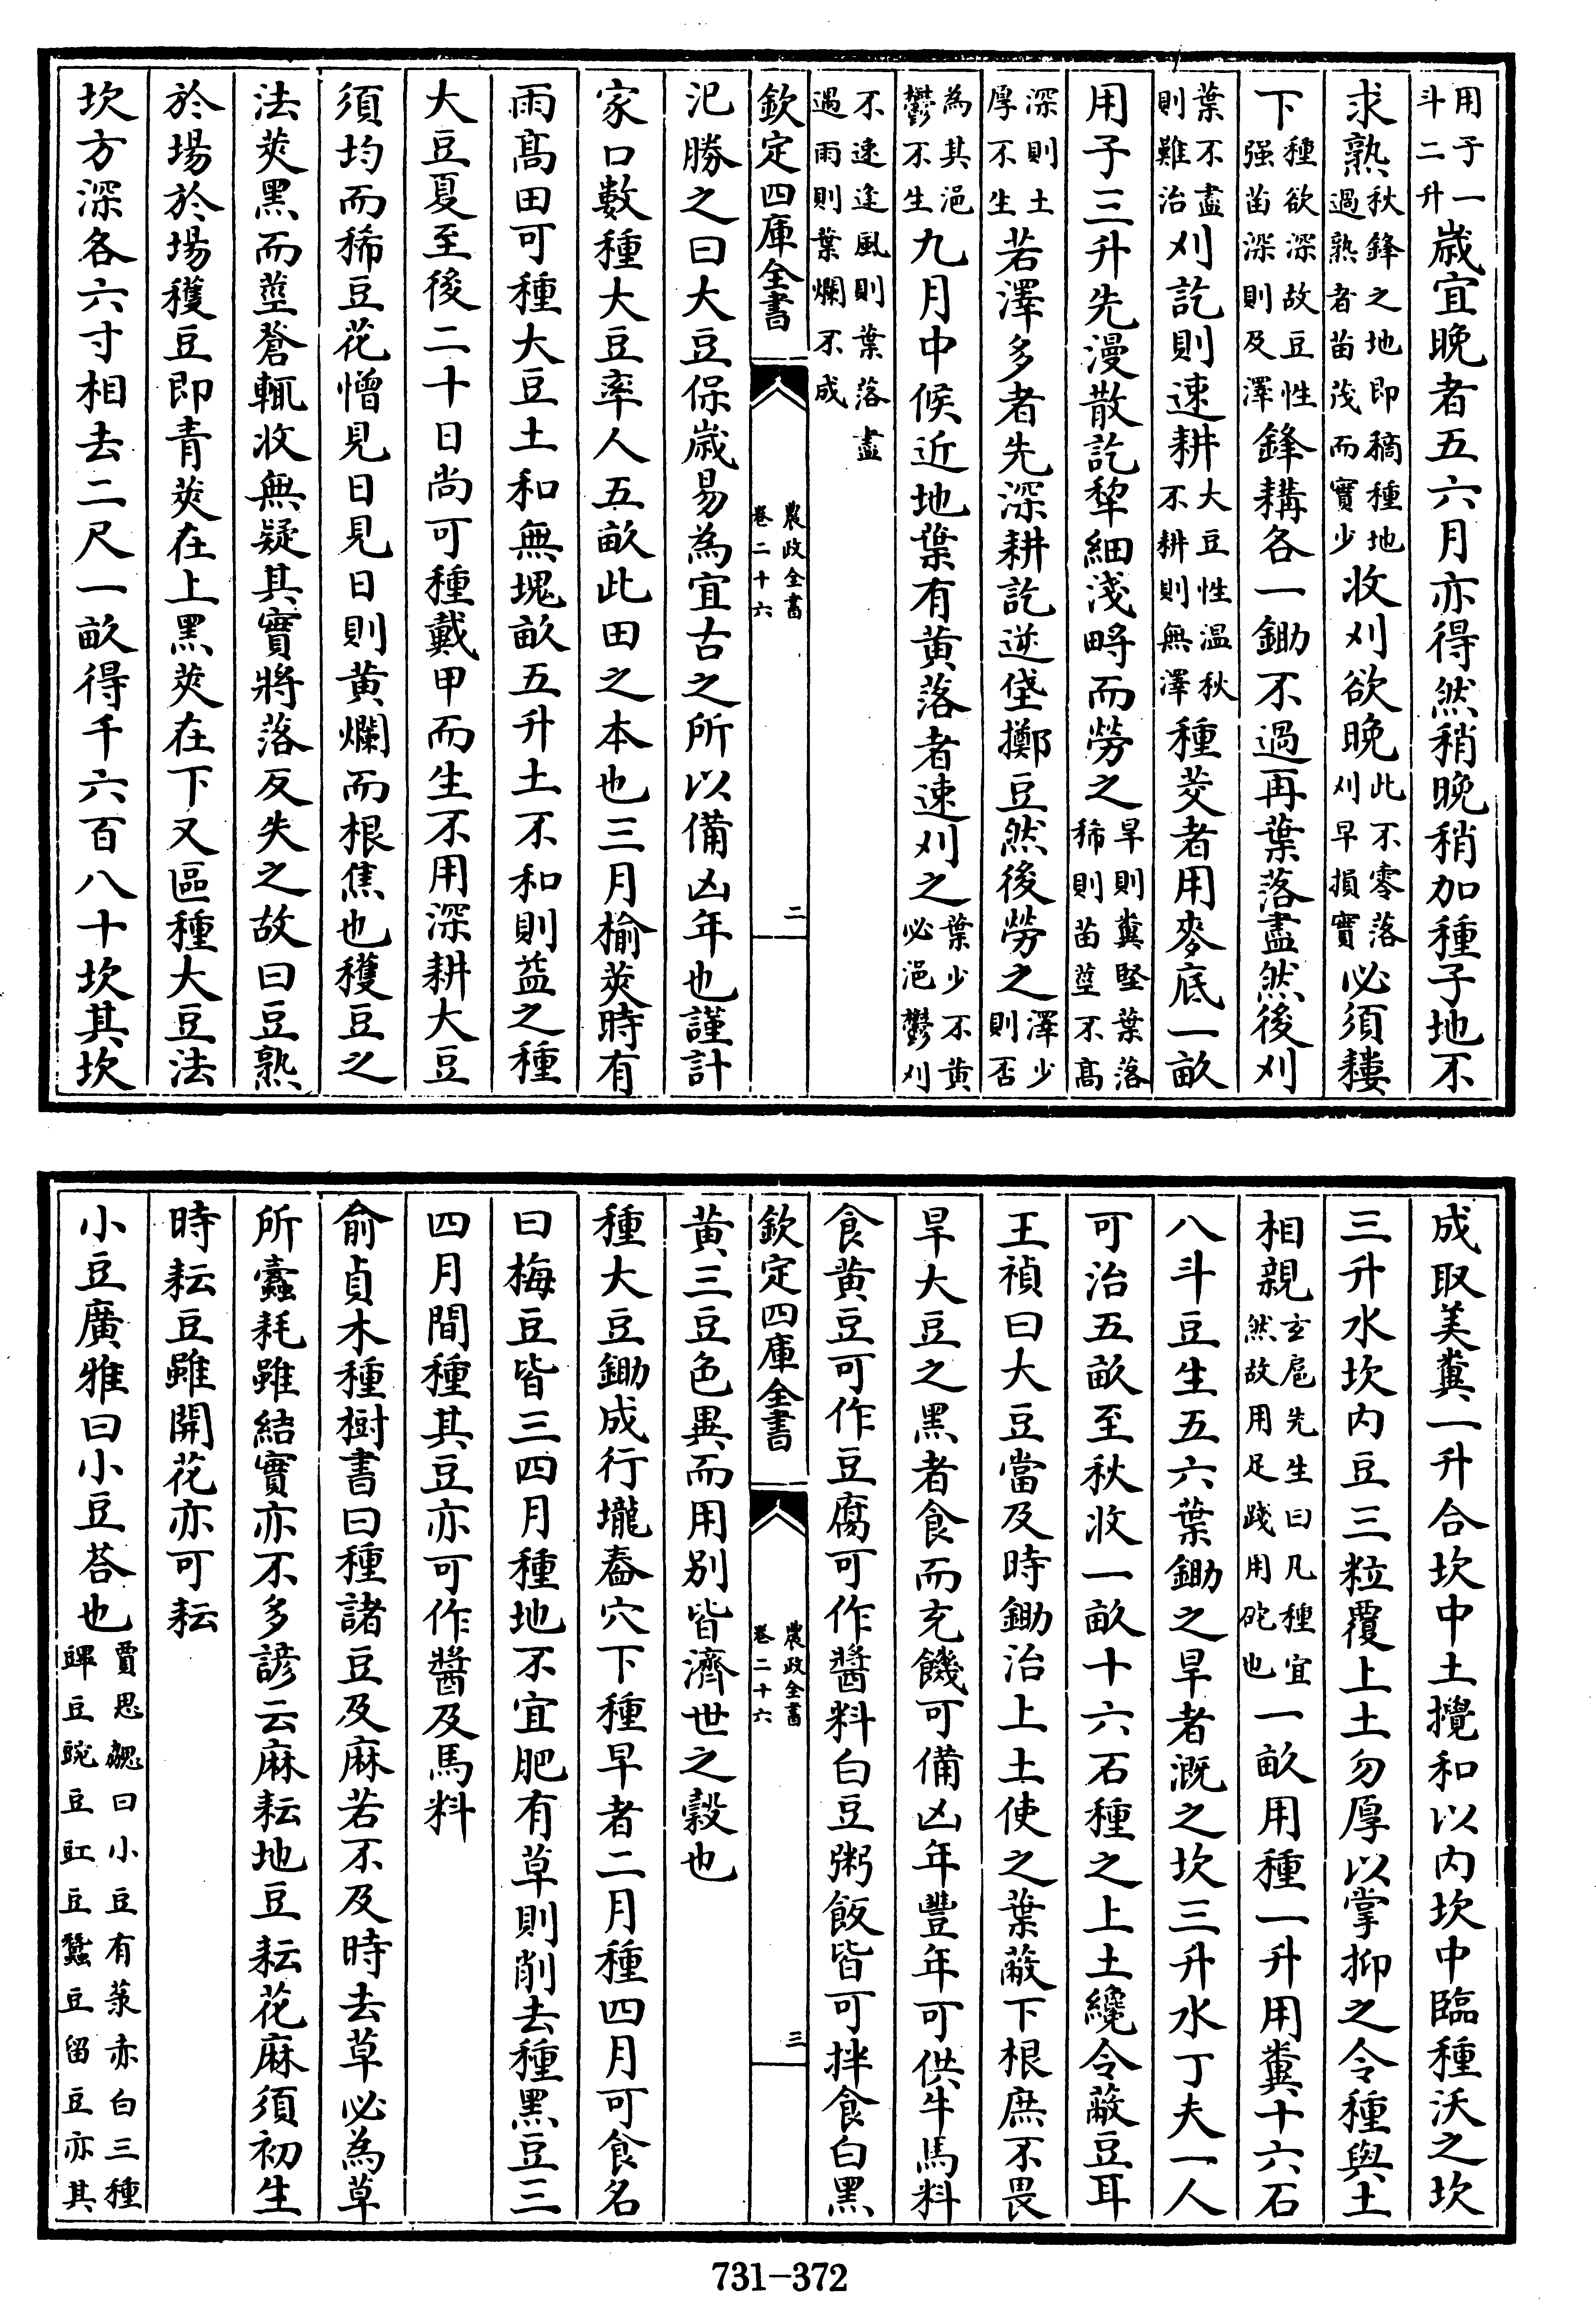 用子一斗二升歳宜晚者五六月亦得然稍晚稍加種子地不
求熟秋鋒之地即穊種地過熟者苗茂而實少收刈欲晚此不零落刈早損實必須耬
下種欲深故豆性强苗深則及澤鋒耩各一鋤不過再葉落盡然後刈
葉不盡則難治刈訖則速耕大豆性温秋不耕則無澤種茭者用麥底一畝
用子三升先漫散訖犂細淺畤而勞之旱則糞堅葉落稀則苗莖不髙
深則土厚不生若澤多者先深耕訖逆垡擲豆然後勞之澤少則否
為其浥鬱不生九月中候近地葉有黄落者速刈之葉少不黄必浥鬱刈
不速逢風則葉落盡遇雨則葉爛不成
欽定四庫全書
農政全書卷二十六
二
氾勝之曰大豆保歳易為宜古之所以備凶年也謹計
家口數種大豆率人五畝此田之本也三月榆莢時有
雨髙田可種大豆土和無塊畝五升土不和則益之種
大豆夏至後二十日尚可種戴甲而生不用深耕大豆
須均而稀豆花憎見日見日則黄爛而根焦也穫豆之
法莢黑而莖蒼輒收無疑其實將落反失之故曰豆熟
於場於場穫豆即青莢在上黑莢在下又區種大豆法
坎方深各六寸相去二尺一畝得千六百八十坎其坎
成取美糞一升合坎中土攪和以内坎中臨種沃之坎
三升水坎内豆三粒覆上土勿厚以掌抑之令種與土
相親玄扈先生曰凡種宜然故用足踐用砣也一畝用種一升用糞十六石
八斗豆生五六葉鋤之旱者溉之坎三升水丁夫一人
可治五畝至秋收一畝十六石種之上土纔令蔽豆耳
王禎曰大豆當及時鋤治上土使之葉蔽下根庶不畏
旱大豆之黑者食而充饑可備凶年豐年可供牛馬料
食黄豆可作豆腐可作醬料白豆粥飯皆可拌食白黑
欽定四庫全書
農政全書卷二十六
三
黄三豆色異而用别皆濟世之穀也
種大豆鋤成行壠舂穴下種早者二月種四月可食名
曰梅豆皆三四月種地不宜肥有草則削去種黑豆三
四月間種其豆亦可作醬及馬料
俞貞木種樹書曰種諸豆及麻若不及時去草必為草
所蠧耗雖結實亦不多諺云麻耘地豆耘花麻須初生
時耘豆雖開花亦可耘
小豆廣雅曰小豆荅也賈思勰曰小豆有菉赤白三種豍豆豌豆豇豆䝁豆留豆亦其
731-372